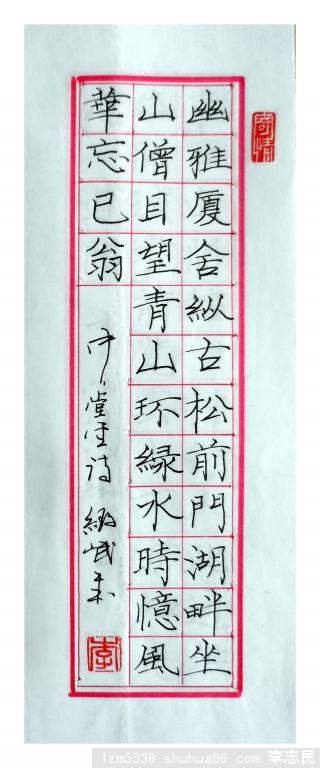 寄情
幽雅廈舍纵古松前門湖畔坐
山僧目望青山环緑水時憶風
華忘已翁
中堂 诗
李
lzm5538.shuhua66.com 李志民